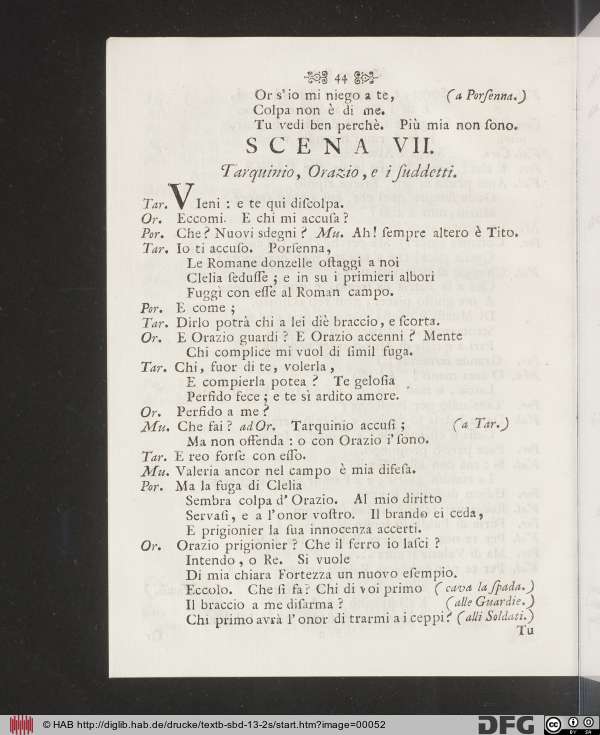 44
Or s'io mi niego a te, (a Porſenna.)
Colpa non è di me.
Tu vedi ben perchè. Più mia non ſono.
SCENA VII.
Tarquinio, Orazio, e i ſuddetti.
Tar. VIeni : e te qui diſcolpa.
Or. Eccomi. E chi mi accuſa ?
Por. Che ? Nuovi sdegni ? Mu. Ah! ſempre altero è Tito.
Tar. Io ti accuſo. Porſenna,
Le Romane donzelle oſtaggi a noi
Clelia ſeduſſe ; e in su i primieri albori
Fuggì con eſſe al Roman campo.
Por. E come ;
Tar. Dirlo potrà chi a lei diè braccio, e ſcorta.
Or. E Orazio guardi ? E Orazio accenni ? Mente
Chi complice mi vuol di ſimil fuga.
Tar. Chi, fuor di te, volerla,
E compierla potea ? Te geloſia
Perfido fece ; e te sì ardito amore.
Or. Perfido a me ?
Mu. Che fai ? ad Or. Tarquinio accuſi ; (a Tar.)
Ma non offenda : o con Orazio i' ſono.
Tar. E reo forſe con eſſo.
Mu. Valeria ancor nel campo è mia difeſa.
Por. Ma la fuga di Clelia
Sembra colpa d' Orazio. Al mio diritto
Servaſi, e a l'onor voſtro. Il brando ei ceda,
E prigionier la ſua innocenza accerti.
Or. Orazio prigionier ? Che il ferro io laſci ?
Intendo, o Re. Si vuole
Di mia chiara Fortezza un nuovo eſempio.
Eccolo. Che ſi fa ? Chi di voi primo (cava la ſpada.)
Il braccio a me diſarma ? (alle Guardie.)
Chi primo avrà l' onor di trarmi a i ceppi ? (alli Soldati.)
Tu
© HAB http://diglib.hab.de/drucke/textb-sbd-13-2s/start.htm?image=00052
DFG
cc BY SA